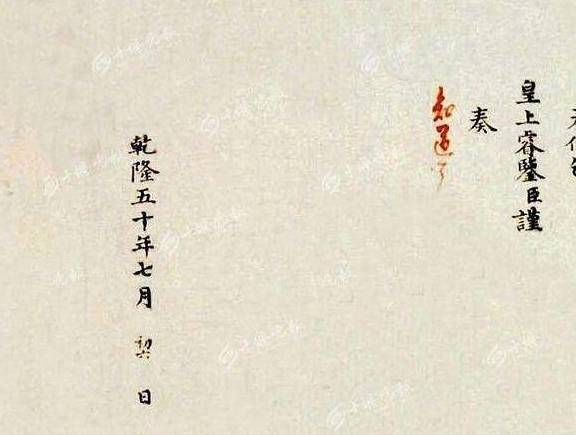 皇上睿鑒臣謹
奏
知道了
乾隆五十年七月 日